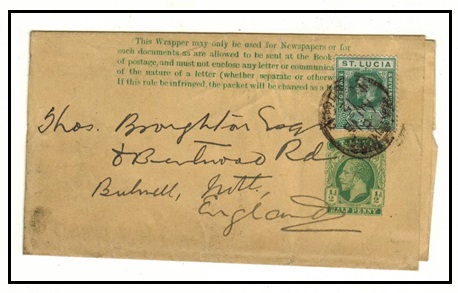 This Wrapper may only be used for Newspapers or for
such documents as are allowed to be sent at the Book
of postage, and must not enclose any letter or communica
of the nature of a letter (whether separate or otherw
If this rule be infringed, the packet will be charged as a
ST. LUCIA
Thos. Broughton Esq
8 Brentwood Rd
Bulwell, Notts,
England
½ ½
HALF PENNY